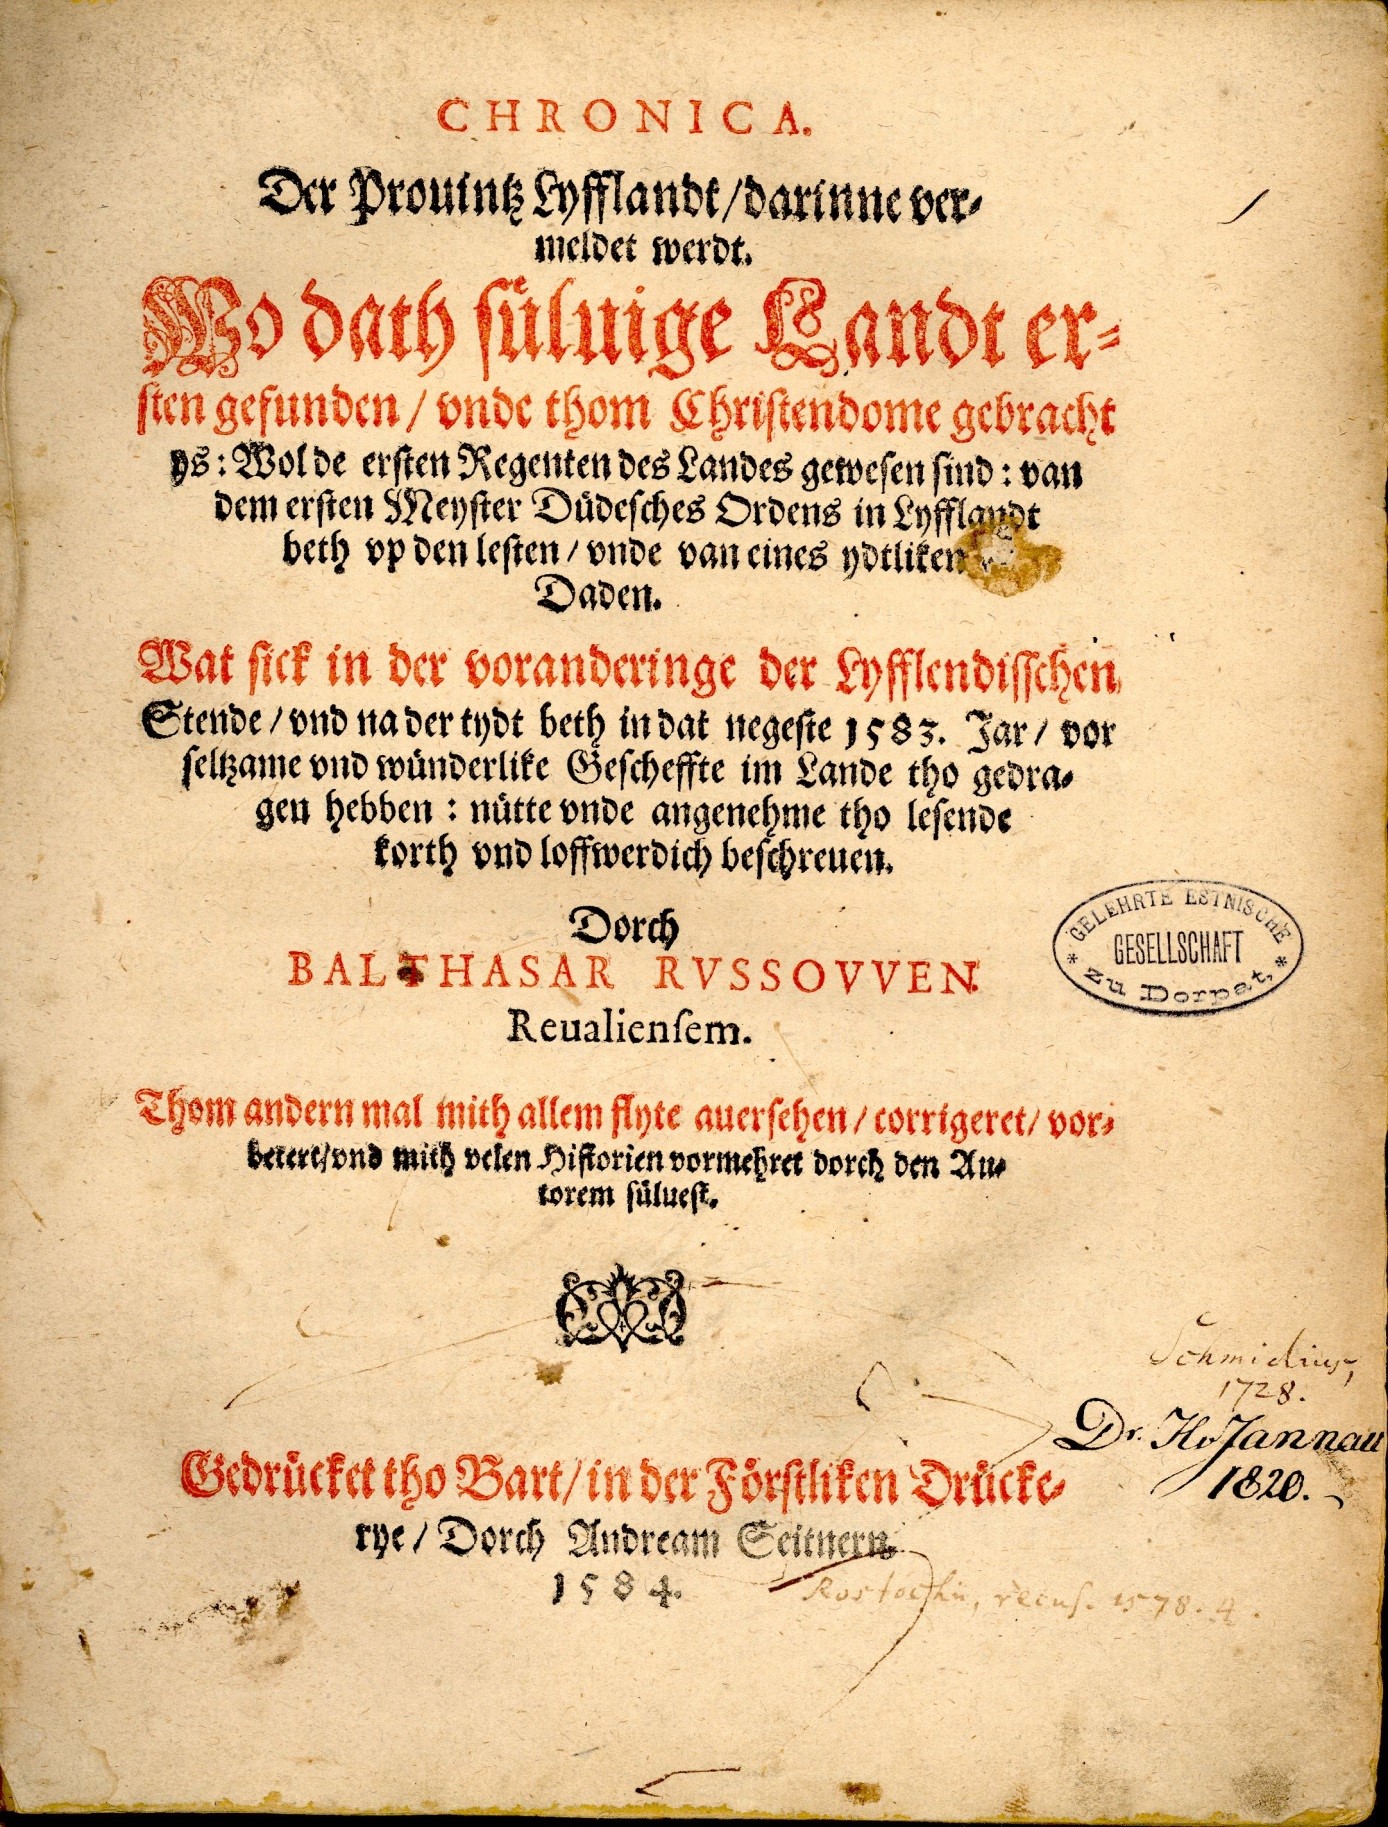 CHRONICA.
Der Prouintz Lyfflandt/darinne ver-
meldet werdt.
Wo dath süluige Landt er-
sten gefunden/ vnde thom Christendome gebracht
ys: Wol de ersten Regenten des Landes gewesen sind: van
dem ersten Meyster Düdesches Ordens in Lyfflandt
beth vp den lesten/ vnde van eines ydtliken
Daden.
Wat sick in der voranderinge der Lyfflendisschen
Stende/ vnd na der tydt beth in dat negeste 1583. Jar/ vor
seltzame vnd wünderlike Gescheffte im Lande tho gedra-
gen hebben: nütte vnde angenehme tho lesende
korth vnd loffwerdich beschreuen.
Dorch
BALTHASAR RVSSOVVEN.
Reualienſem.
Thom andern mal mith allem flyte auersehen/ corrigeret/ vor-
betert/vnd mith velen Historien vormehret dorch den Au-
torem süluest.
GELEHRTE ESTNISCHE
* GESELLSCHAFT *
zu Dorpat.
Schmidius,
1728.
Dr. H. Jannau
1820.
Gedrücket tho Bart/ in der Förstliken Drücke-
rye/ Dorch Andream Seitnern.
1584.
Rostochii, recus. 1578. 4.